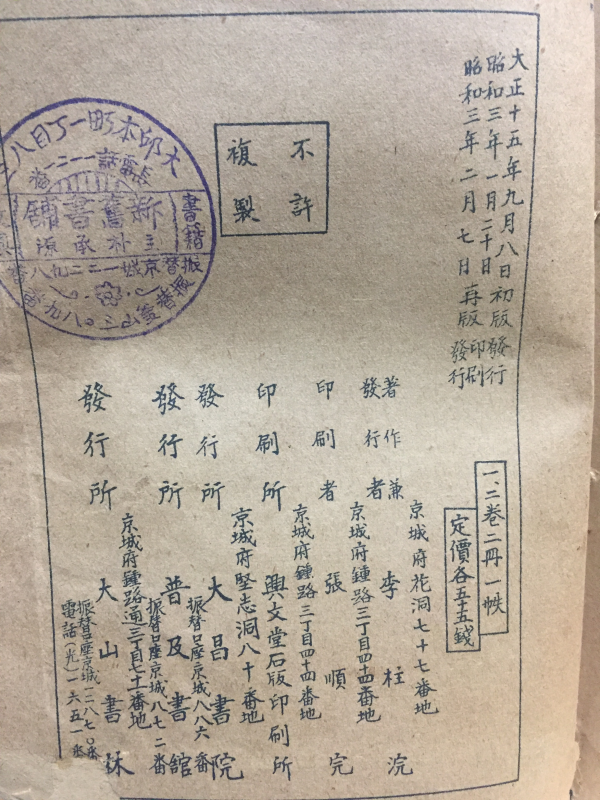 大正十五年九月八日初版發行
昭和三年一月二十日印刷
昭和三年二月七日再版發行
不許
複製
一、二卷二冊一帙
定價各五十五錢
京城府花洞七十七番地
著作兼
發行者 李柱浣
京城府鍾路三丁目四十四番地
印刷者 張順完
京城府鍾路三丁目四十四番地
印刷所 興文堂石版印刷所
京城府堅志洞八十番地
發行所 大昌書院
振替口座京城八八六番
發行所 普及書館
振替口座京城八七二番
京城府鍾路通三丁目七十一番地
發行所 大山書林
振替口座京城一二八七〇番
電話(光)一六五一番
大邱本町一丁目八
電話一二一一番
書籍
新舊書舖
主朴承源
振替京城一二二九八
振替釜山三〇八九番